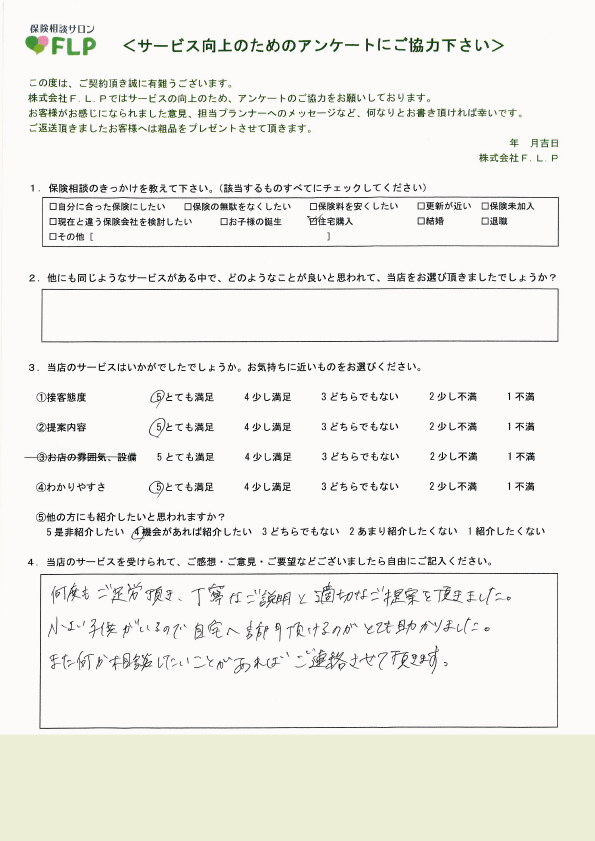 保険相談サロン
FLP
＜サービス向上のためのアンケートにご協力下さい＞
この度は、ご契約頂き誠に有難うございます。
株式会社F.L.Pではサービスの向上のため、アンケートのご協力をお願いしております。
お客様がお感じになられました意見、担当プランナーへのメッセージなど、何なりとお書き頂ければ幸いです。
ご返送頂きましたお客様へは粗品をプレゼントさせて頂きます。
年　月吉日
株式会社F.L.P
1．保険相談のきっかけを教えて下さい。（該当するものすべてにチェックしてください）
□自分に合った保険にしたい　□保険の無駄をなくしたい　□保険料を安くしたい　□更新が近い　□保険未加入
□現在と違う保険会社を検討したい　□お子様の誕生　☑住宅購入　□結婚　□退職
□その他［　］
2．他にも同じようなサービスがある中で、どのようなことが良いと思われて、当店をお選び頂きましたでしょうか？
3．当店のサービスはいかがでしたでしょうか。お気持ちに近いものをお選びください。
①接客態度　5とても満足　4少し満足　3どちらでもない　2少し不満　1不満
②提案内容　5とても満足　4少し満足　3どちらでもない　2少し不満　1不満
③お店の雰囲気、設備　5とても満足　4少し満足　3どちらでもない　2少し不満　1不満
④わかりやすさ　5とても満足　4少し満足　3どちらでもない　2少し不満　1不満
⑤他の方にも紹介したいと思われますか？
5是非紹介したい　4機会があれば紹介したい　3どちらでもない　2あまり紹介したくない　1紹介したくない
4．当店のサービスを受けられて、ご感想・ご意見・ご要望などございましたら自由にご記入ください。
何度もご足労頂き、丁寧なご説明と適切なご提案を頂きました。
小さい子供がいるので自宅へ訪問頂けるのがとても助かりました。
また何か相談したいことがあればご連絡させて頂きます。